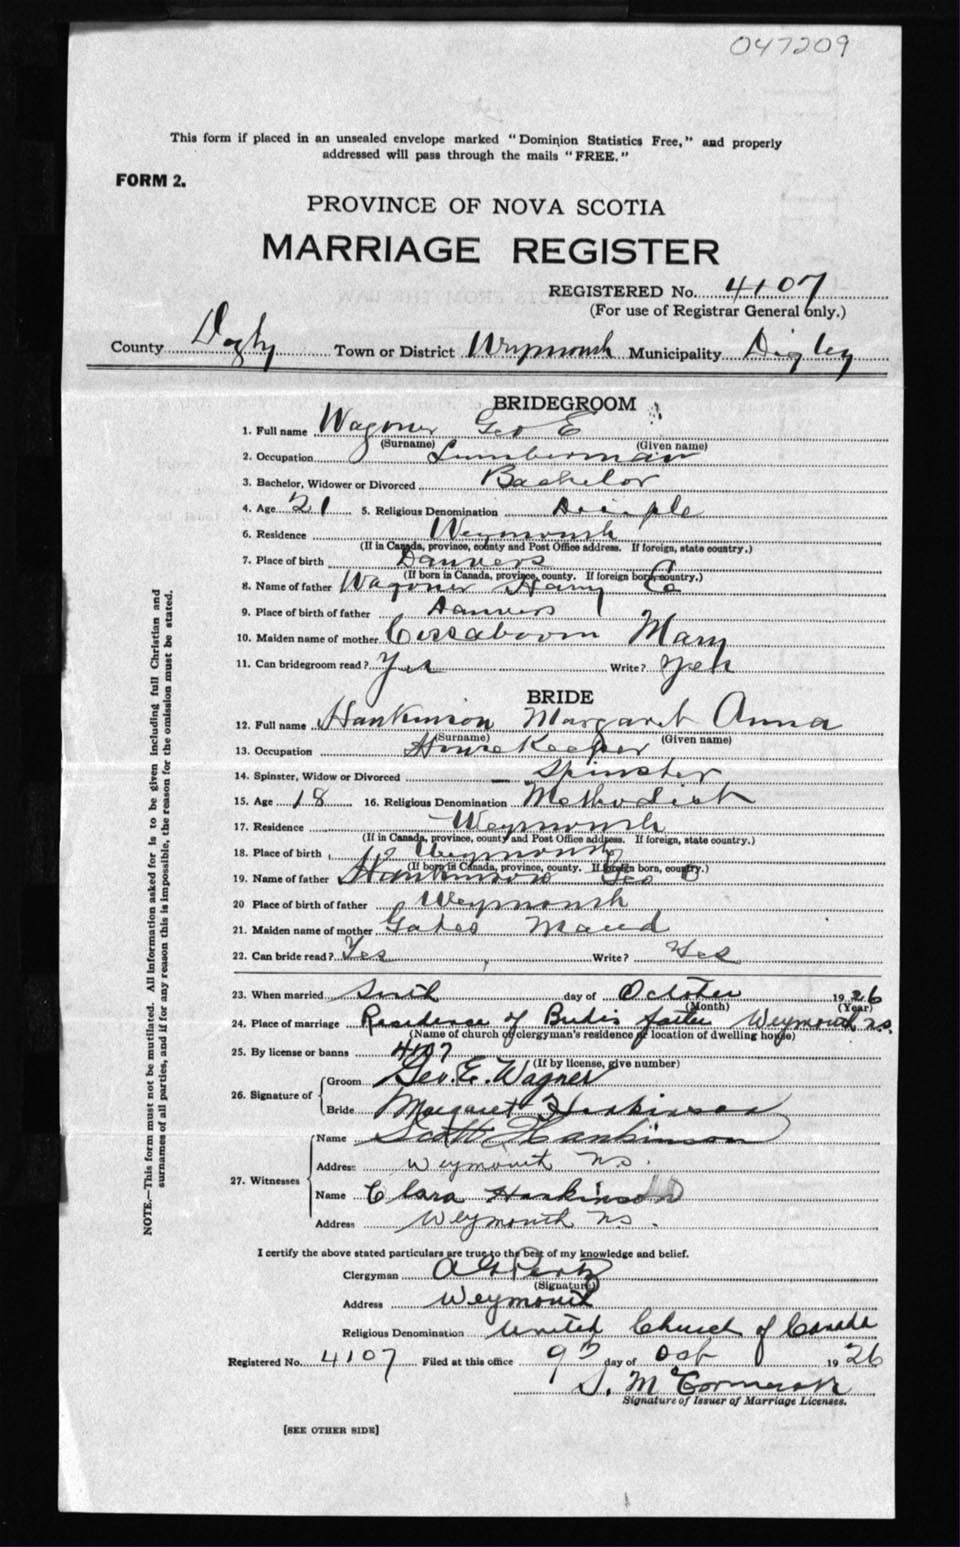 047209
This form if placed in an unsealed envelope marked "Dominion Statistics Free," and properly
addressed will pass through the mails "FREE."
FORM 2.
PROVINCE OF NOVA SCOTIA
MARRIAGE REGISTER
REGISTERED No. 4107
(For use of Registrar General only.)
County Digby Town or District Weymouth Municipality Digby
BRIDEGROOM
1. Full name Wagoner Geo E
(Surname) (Given name)
2. Occupation Lumberman
3. Bachelor, Widower or Divorced Bachelor
4. Age 21 5. Religious Denomination Disciple
6. Residence Weymouth
(If in Canada, province, county and Post Office address. If foreign, state country.)
7. Place of birth Danvers
(If born in Canada, province, county. If foreign born, country.)
8. Name of father Wagoner Harry
9. Place of birth of father Danvers
10. Maiden name of mother Cossaboom Mary
11. Can bridegroom read? Yes Write? Yes
BRIDE
12. Full name Hankinson Margaret Anna
(Surname) (Given name)
13. Occupation House Keeper
14. Spinster, Widow or Divorced — Spinster
15. Age 18 16. Religious Denomination Methodist
17. Residence Weymouth
(If in Canada, province, county and Post Office address. If foreign, state country.)
18. Place of birth Weymouth
(If born in Canada, province, county. If foreign born, country.)
19. Name of father Hankinson Geo
20 Place of birth of father Weymouth
21. Maiden name of mother Gates Maud
22. Can bride read? Yes Write? Yes
23. When married day of October 1926
(Month) (Year)
24. Place of marriage Residence of Bride's father Weymouth N.S.
(Name of church or clergyman's residence or location of dwelling house)
25. By license or banns 4107
(If by license, give number)
26. Signature of
Groom Geo. E. Wagner
Bride Margaret Hankinson
27. Witnesses
Name Scott Hankinson
Address Weymouth N.S.
Name Clara Hankinson
Address Weymouth N.S.
I certify the above stated particulars are true to the best of my knowledge and belief.
Clergyman
(Signature)
Address Weymouth
Religious Denomination United Church of Canada
Registered No. 4107 Filed at this office 9 day of Oct 1926
S. McCormack
Signature of Issuer of Marriage Licenses.
[SEE OTHER SIDE]
NOTE.—This form must not be mutilated. All information asked for is to be given including full Christian and
surnames of all parties, and if for any reason this is impossible, the reason for the omission must be stated.